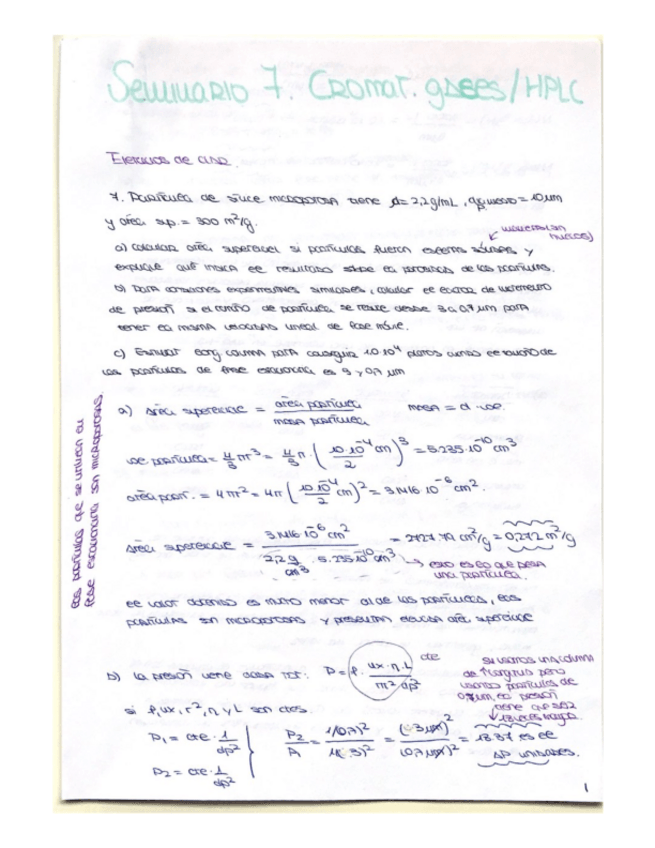 Seminario 7. Cromat. gases/HPLC
Ejercicios de clase
7. Partícula de sílice microporosa tiene d=2,2g/mL, = 10 µm
y área sup. = 300 m²/g.
a) calcular área superficial si partículas fueran esferas sólidas y
explique qué indica el resultado sobre la porosidad de las partículas.
b) para condiciones experimentales similares, calcular el factor de incremento
de presión si el tamaño de partícula se reduce desde 3 a 0,7 µm para
tener la misma velocidad lineal de fase móvil.
c) Estimar long columna para conseguir 10·10⁴ platos cuando el tamaño de
las partículas de fase estacionaria es 3 y 0,7 µm
las partículas que se utilizan en
fase estacionaria son microporosas.
a) área superficial = área partícula / masa partícula masa = d · vol.
vol partícula = 4/3 πr³ = 4/3 π · (10·10⁻⁴ cm / 2)³ = 5.235·10⁻¹⁰ cm³
área part. = 4πr² = 4π (10·10⁻⁴ cm / 2)² = 3.1416·10⁻⁶ cm².
área superficial = 3.1416·10⁻⁶ cm² / 2,2 g/cm³ · 5.235·10⁻¹⁰ cm³ = 2727.79 cm²/g = 0,272 m²/g
→ esto es lo que pesa
una partícula.
el valor obtenido es mucho menor al de las partículas, las
partículas son microporosas y presentan elevada área superficie
b) la presión viene dada por: P = f · ux·η·L / πr²·dp² cte
si f, ux, r², η y L son ctes.
P₁ = cte · 1/dp²
P₂ = cte · 1/dp²
P₂/P₁ = 1/(0,7)² / 1/(3)² = (3 µm)² / (0,7 µm)² = 18.37 es el
ΔP unidades.
si usamos una columna
de longitud pero
usamos partículas de
0,7 µm, la presión
tiene que ser
18 veces mayor.
1